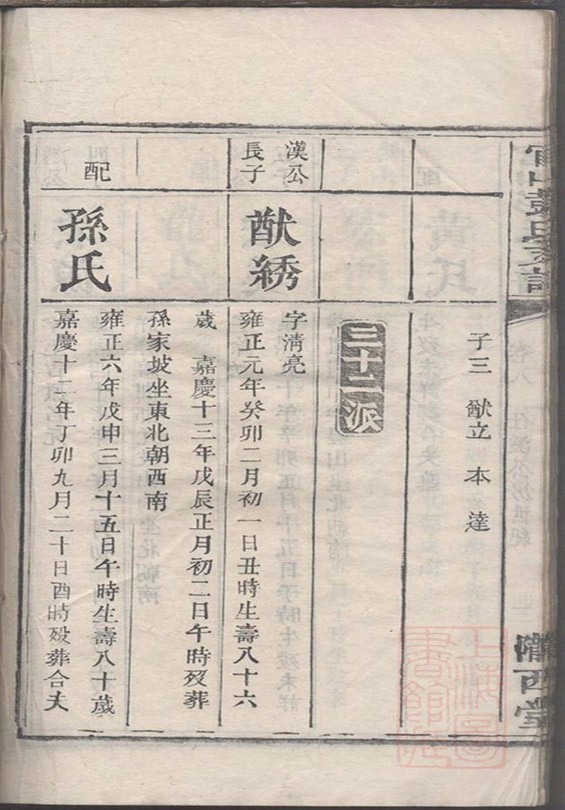 隴西堂
子三 猷立 本 達
三十二派
漢公
長子
猷綉
字清亮
雍正元年癸卯二月初一日丑時生壽八十六
歲 嘉慶十三年戊辰正月初二日午時歿葬
孫家坡坐東北朝西南
配
孫氏
雍正六年戊申三月十五日午時生壽八十歲
嘉慶十二年丁卯九月二十日酉時歿葬合夫